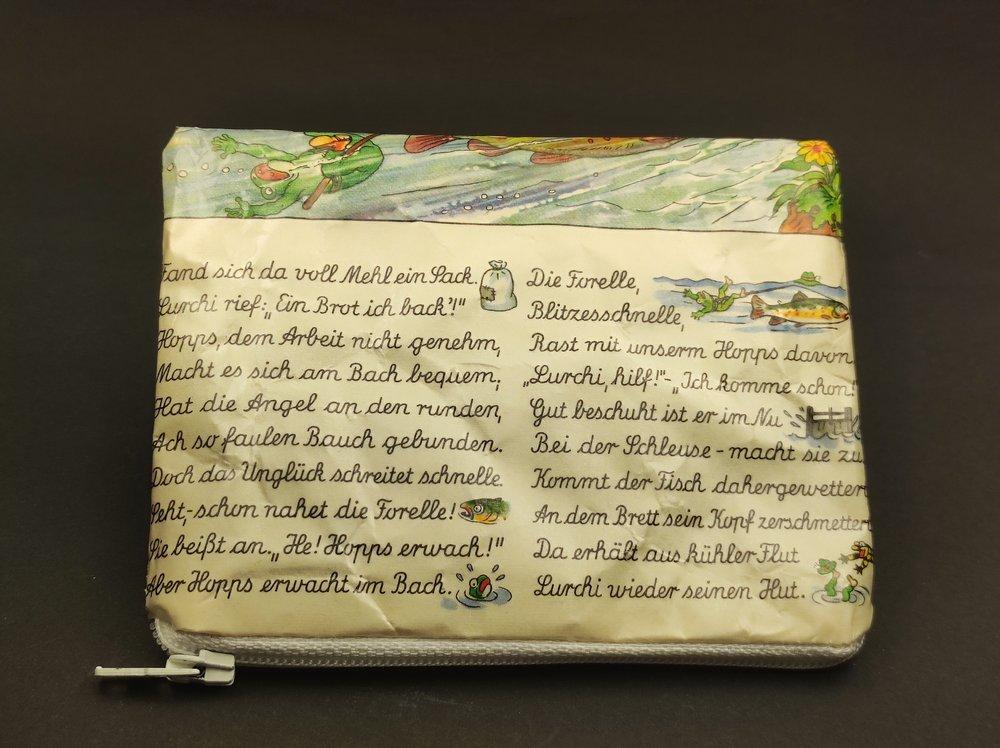 Fand sich da voll Mehl ein Sack.
Lurchi rief: „Ein Brot ich back'!"
Hopps, dem Arbeit nicht genehm,
Macht es sich am Bach bequem;
Hat die Angel an den runden,
Ach so faulen Bauch gebunden.
Doch das Unglück schreitet schnelle.
Seht, - schon nahet die Forelle!
Sie beißt an. „He! Hopps erwach!"
Aber Hopps erwacht im Bach.
Die Forelle,
Blitzesschnelle,
Rast mit unserm Hopps davon.
„Lurchi, hilf!" - „Ich komme schon!
Gut beschuht ist er im Nu
Bei der Schleuse - macht sie zu.
Kommt der Fisch dahergewettert
An dem Brett sein Kopf zerschmettert
Da erhält aus kühler Flut
Lurchi wieder seinen Hut.